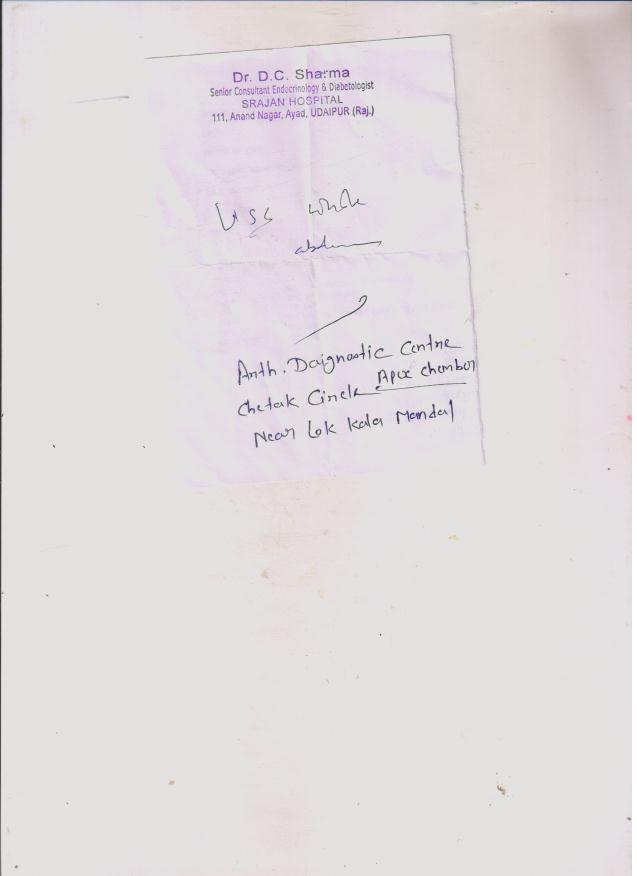 Dr. D.C. Sharma
Senior Consultant Endocrinology & Diabetologist
SRAJAN HOSPITAL
111, Anand Nagar, Ayad, UDAIPUR (Raj.)
whole
Arth. Daignostic Centre
Apex chember
Chetak Circle
Near Lok Kala Mandal